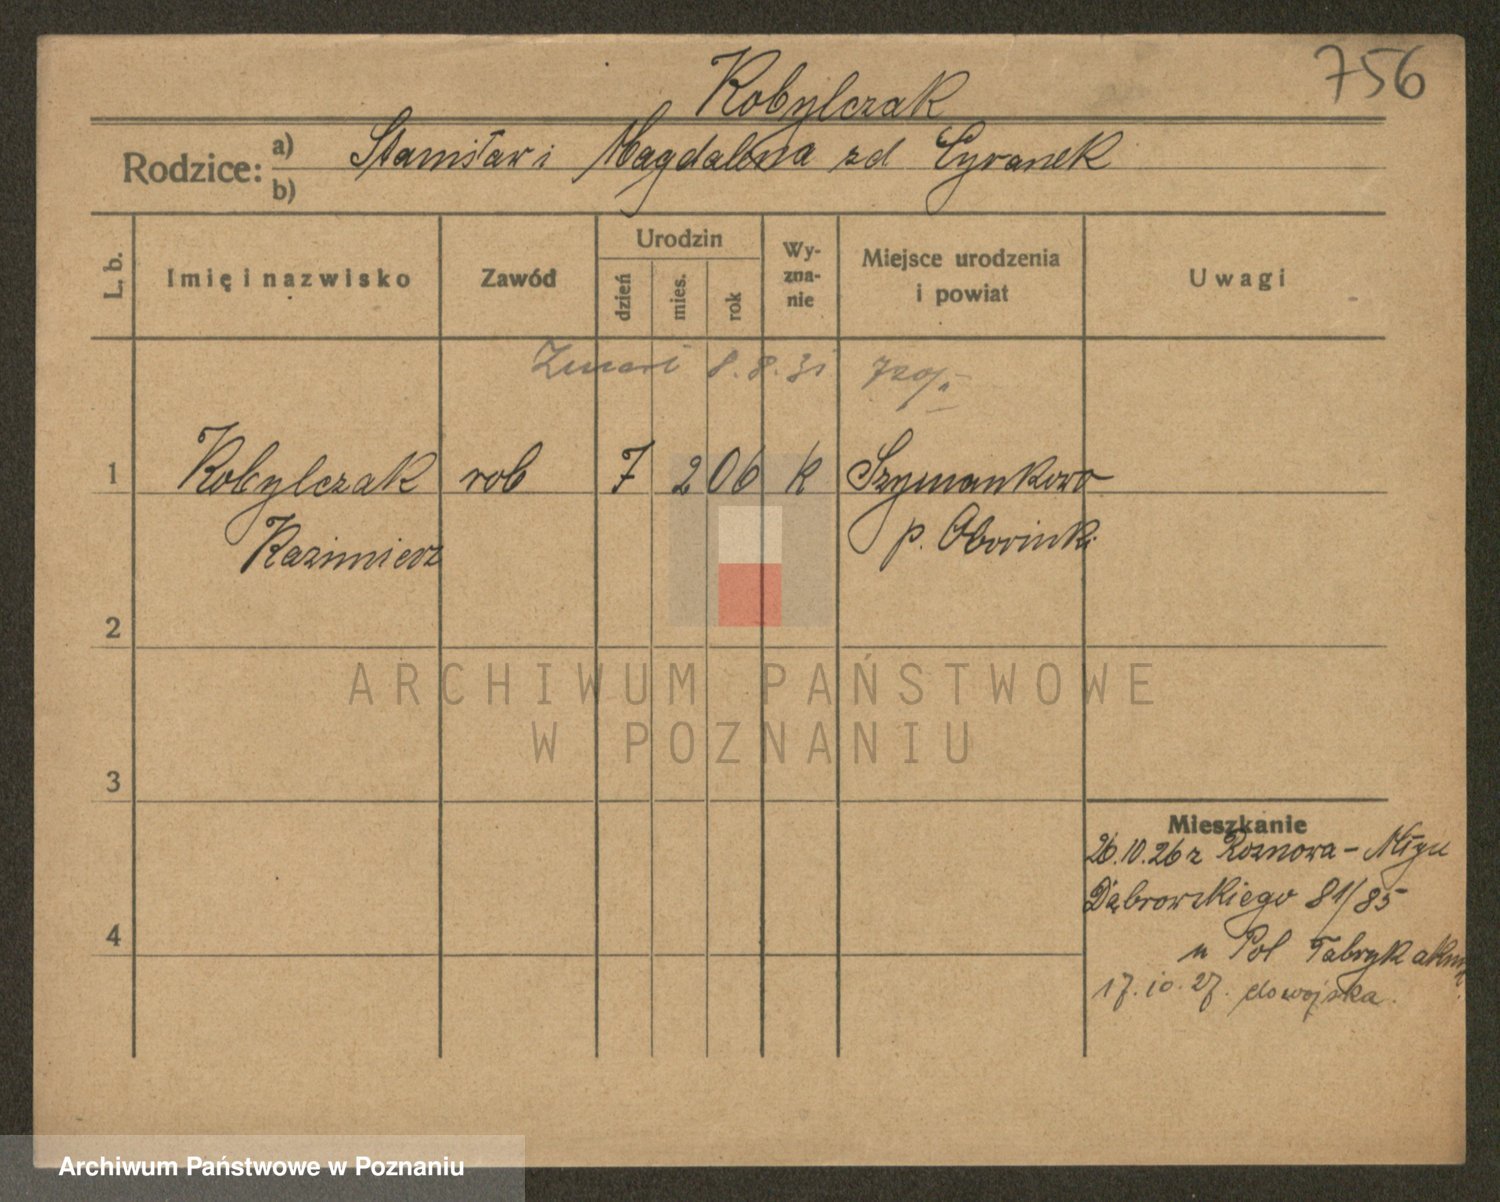 756
Kobylczak
Rodzice: a) Stanisław i Magdalena zd Cyranek
b)
L. b. Imię i nazwisko Zawód Urodzin dzień mies. rok Wy-zna-nie Miejsce urodzenia i powiat Uwagi
Zmarł 8.8.31
1 Kobylczak rob 7 2 06 k Szymankowo
Kazimierz p. Obornicki
2
ARCHIWUM PAŃSTWOWE
W POZNANIU
3
Mieszkanie
26.10.26 z Rożnowa - Młyn
Dąbrowskiego 81/85
4
u Pol Fabryk
17.10.27. do wojska.
Archiwum Państwowe w Poznaniu